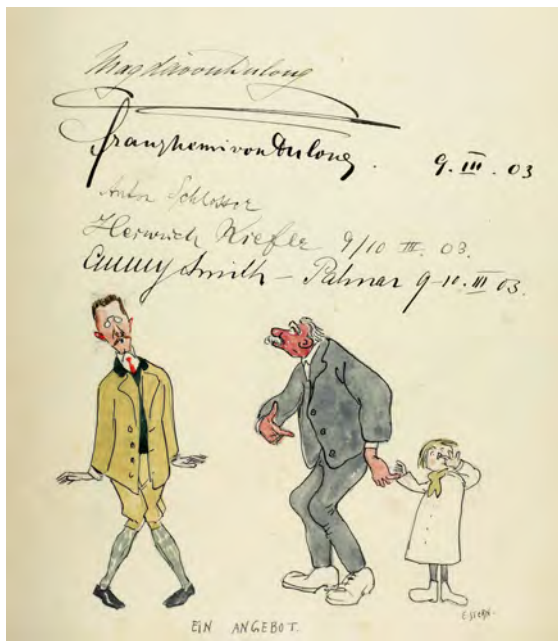 Magda von Dulong
Franz Henri von Dulong. 9. III. 03
Anton Schlosser
Heinrich Kiefer 9/10 III. 03.
Annny Smith – Palmar 9–10. III 03.
EIN ANGEBOT.
E. STERN.